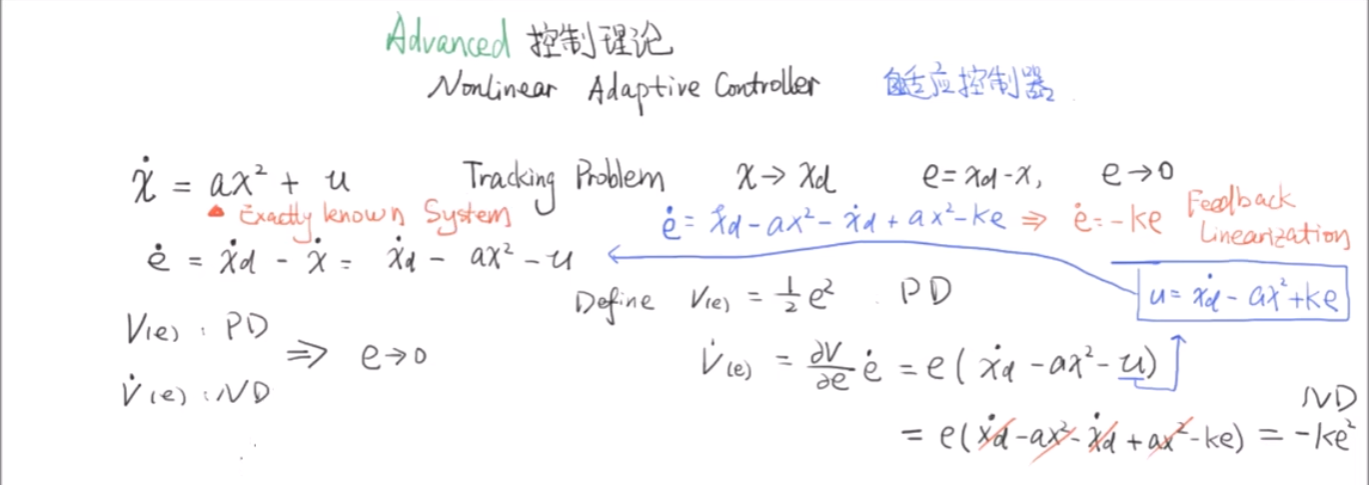 Advanced 控制理论
Nonlinear Adaptive Controller 自适应控制器
ẋ = ax² + u Tracking Problem x → xd e = xd - x, e → 0
Exactly known System
ė = ẋd - ax² - ẋd + ax² - ke ⇒ ė = -ke Feedback Linearization
ė = ẋd - ẋ = ẋd - ax² - u
Define V(e) = ½e² . PD
u = ẋd - ax² + ke
V(e) : PD
V̇(e) : ND
⇒ e → 0
V̇(e) = ∂V/∂e ė = e( ẋd - ax² - u)
= e(ẋd - ax² - ẋd + ax² - ke) = -ke²
ND